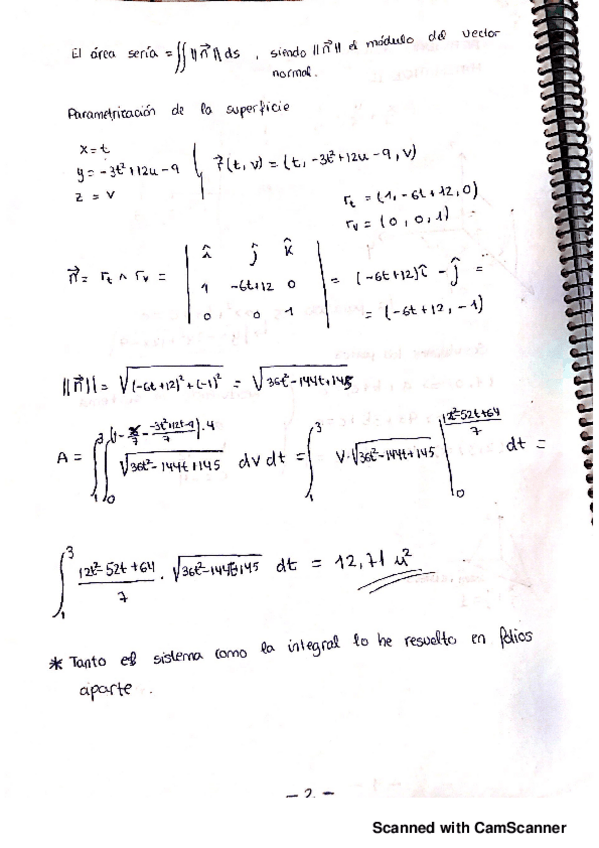 El área sería = ∬ ||n⃗|| ds , siendo ||n⃗|| el módulo del vector
normal.
Parametrización de la superficie
x = t
y = -3t² + 12u - 9
z = v
r⃗(t, v) = (t, -3t² + 12u - 9, v)
r_t = (1, -6t + 12, 0)
r_v = (0, 0, 1)
n⃗ = r_t ∧ r_v = | î ĵ k̂ |
| 1 -6t+12 0 | = (-6t+12)î - ĵ =
| 0 0 1 | = (-6t+12, -1)
||n⃗|| = √((-6t+12)² + (-1)²) = √(36t² - 144t + 145)
A = ∫₁³ ∫₀^((1 - x/7 - (-3t²+12t-9)/7)·4) √(36t² - 144t + 145) dv dt = ∫₁³ v·√(36t² - 144t + 145) |₀^((12t² - 52t + 64)/7) dt =
∫₁³ (12t² - 52t + 64)/7 · √(36t² - 144t + 145) dt = 12,71 u²
* Tanto el sistema como la integral lo he resuelto en folios
aparte.
- 2 -
Scanned with CamScanner